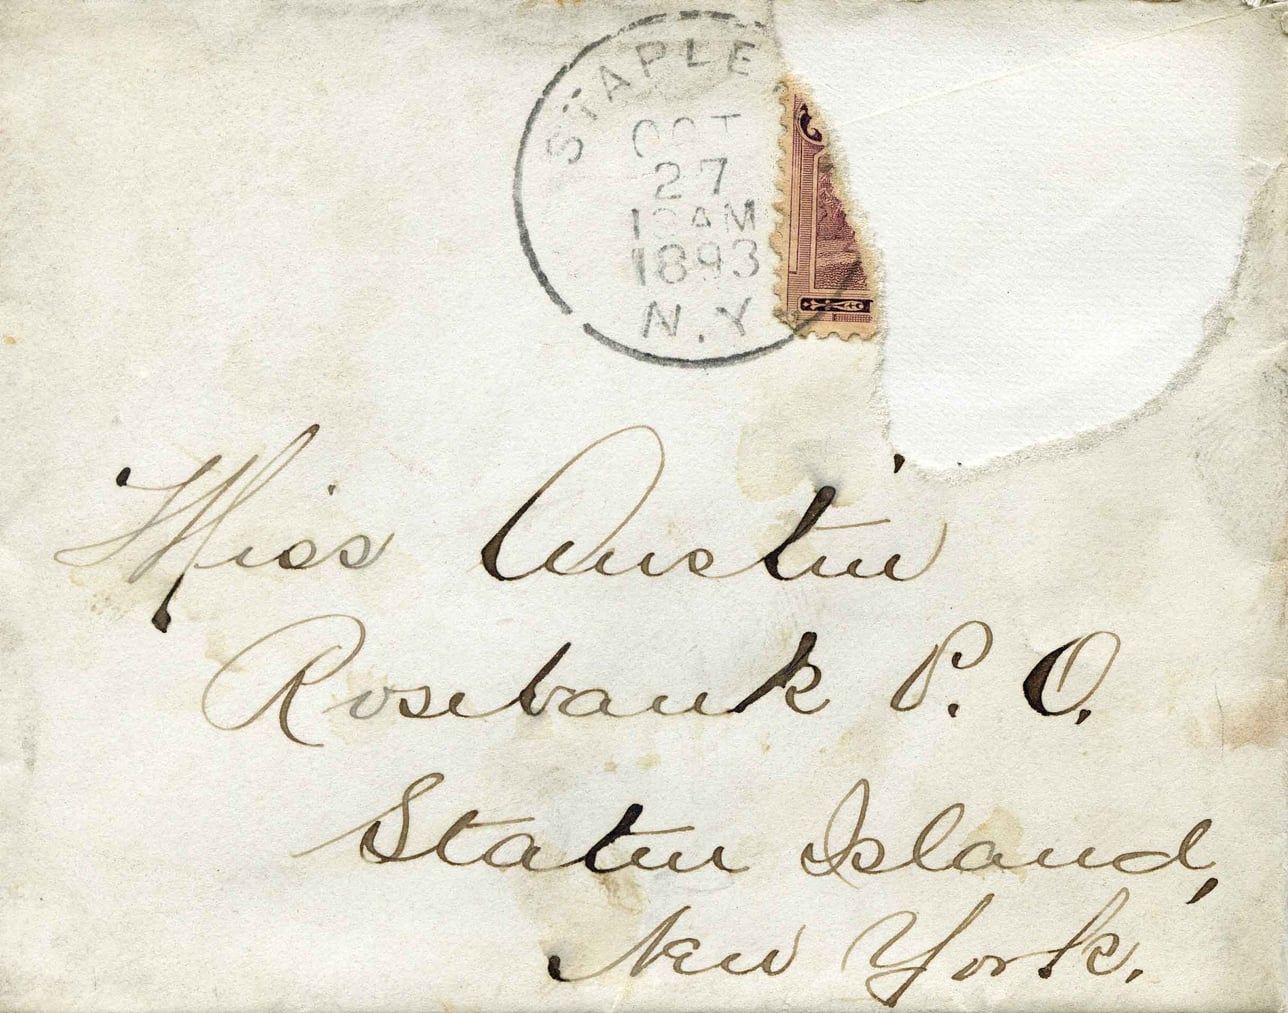 STAPLE
OCT
27
AM
1893
N.Y
Miss Austin
Rosebank P. O.
Staten Island,
New York.